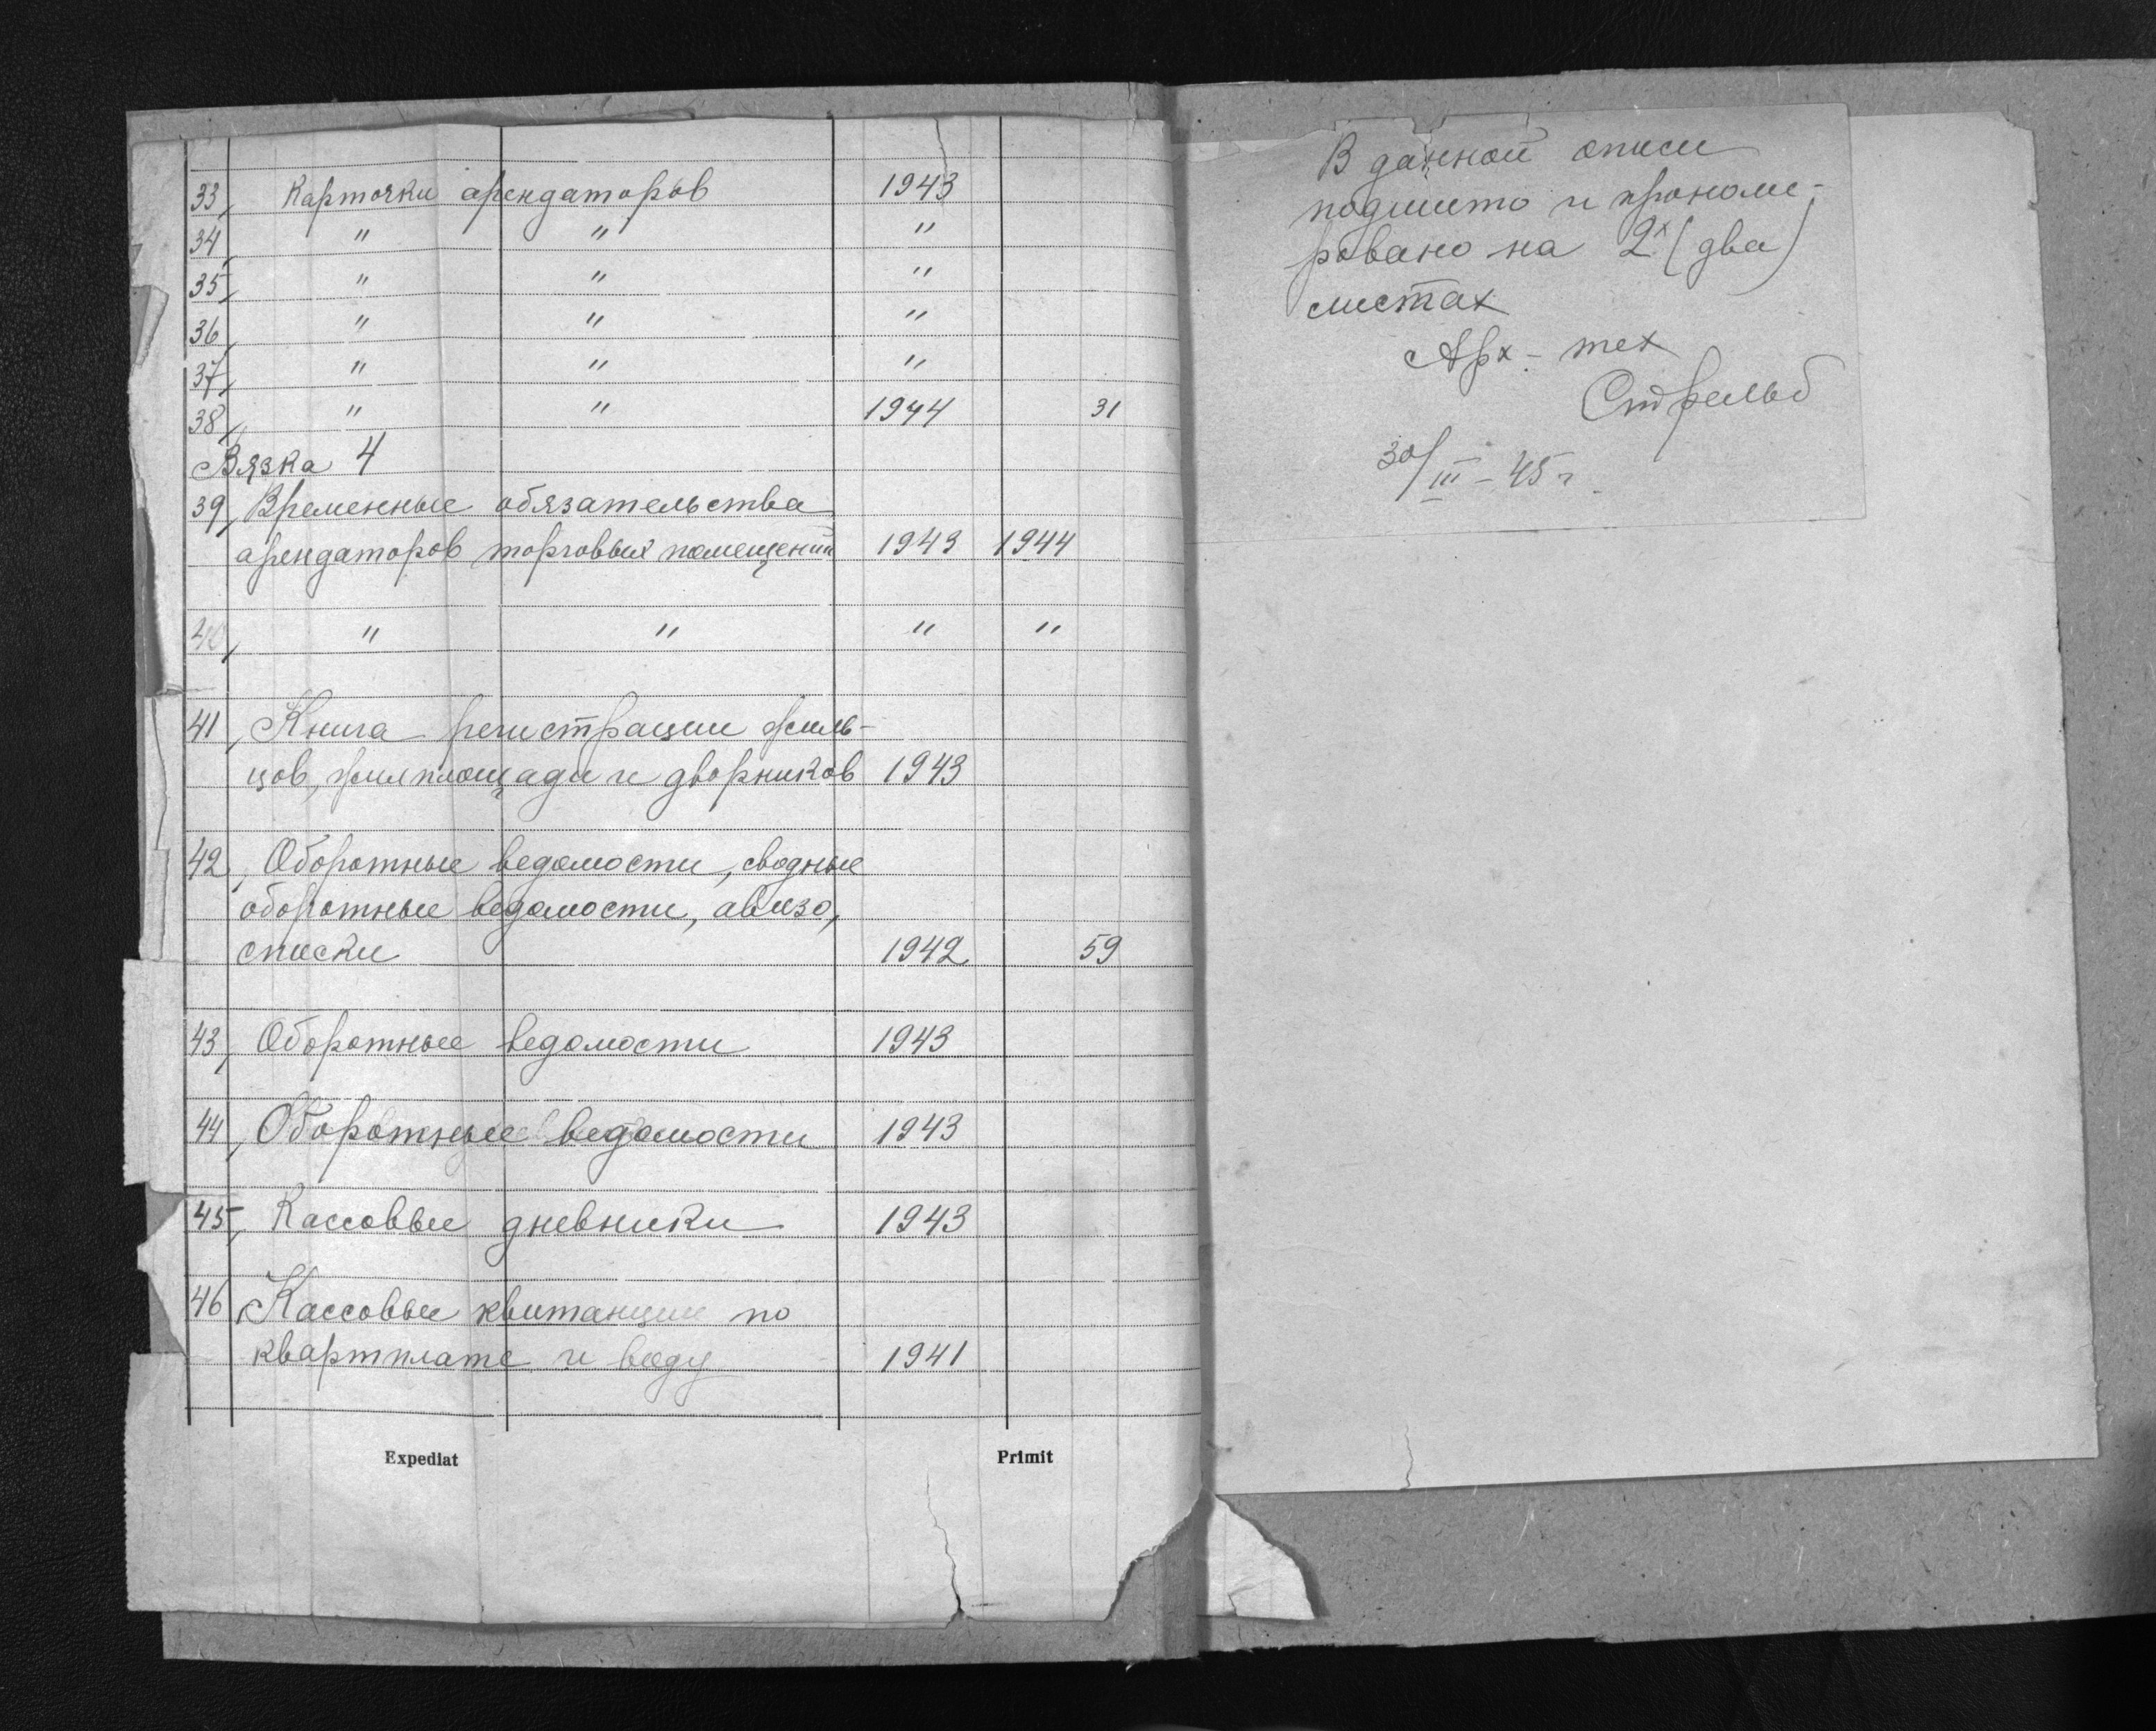 33, Карточки арендаторов 1943
34, " " "
35, " " "
36, " " "
37, " " "
38, " " 1944 31
Вязка 4
39, Временные обязательства
арендаторов торговых помещений 1943 1944
40, " " " "
41, Книга регистрации жиль-
цов, жилплощади и дворников 1943
42, Оборотные ведомости, сводные
оборотные ведомости, авизо,
списки 1942 59
43, Оборотные ведомости 1943
44, Оборотные ведомости 1943
45, Кассовые дневники 1943
46, Кассовые квитанции по
квартплате и воду 1941
Expediat Primit
В данной описи
подшито и прономе-
ровано на 2х (два)
листах
Арх-тех
30/III-45 г.